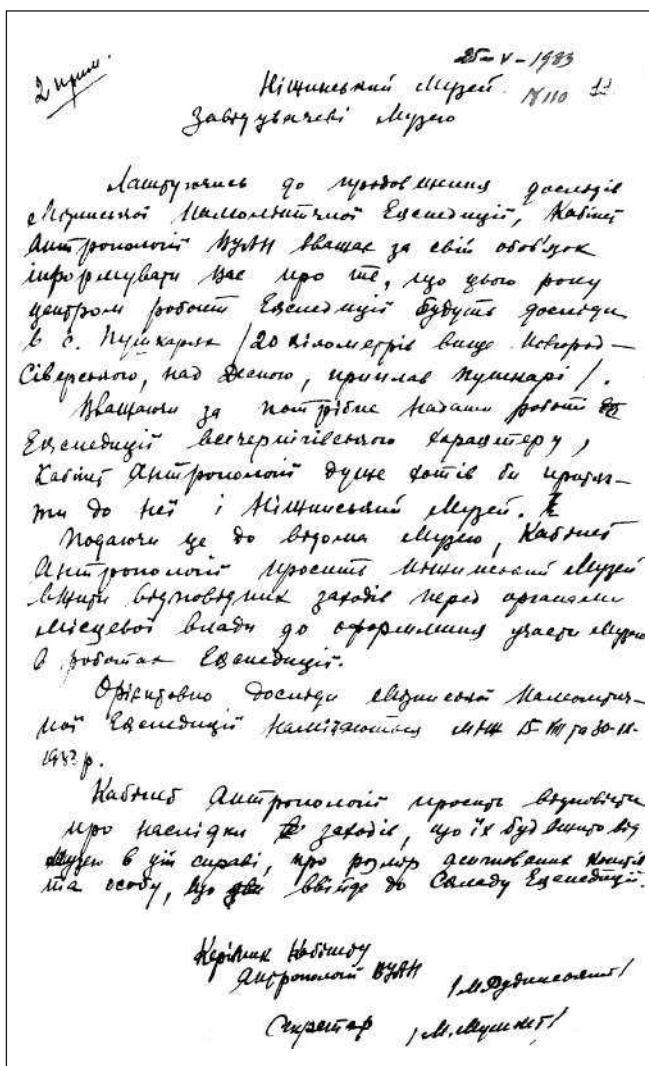 2 прим.
25 - V - 1933
Ніжинський Музей. № 110
Завідувачеві Музею
Лаштуючись до продовження дослідів
Мізинської Палеолітичної Експедиції, Кабінет
Антропології ВУАН вважає за свій обов'язок
інформувати Вас про те, що цього року
центром роботи Експедиції будуть досліди
в с. Пушкарях /20 кілометрів вище Новгород-
Сіверського, над Десною, Пушкарі /.
Вважаючи за потрібне надати роботі
Експедиції всечернігівського характеру,
Кабінет Антропології дуже хотів би притяг-
ти до неї і Ніжинський Музей.
Подаючи це до відома Музею, Кабінет
Антропології просить Ніжинський Музей
вжити відповідних заходів перед органами
місцевої влади до оформлення участи Музею
в роботах Експедиції.
Орієнтовно досліди Мізинської Палеолітич-
ної Експедиції намічаються між 15-VIII та 30-IX-
1933 р.
Кабінет Антропології просить відповісти
про наслідки заходів, що їх буде вжито від
Музею в цій справі, про розмір асигнованих коштів
та особу, що ввійде до складу Експедиції.
Керівник Кабінету
Антропології ВУАН /М. Рудинський/
Секретар /М. Мушкет/